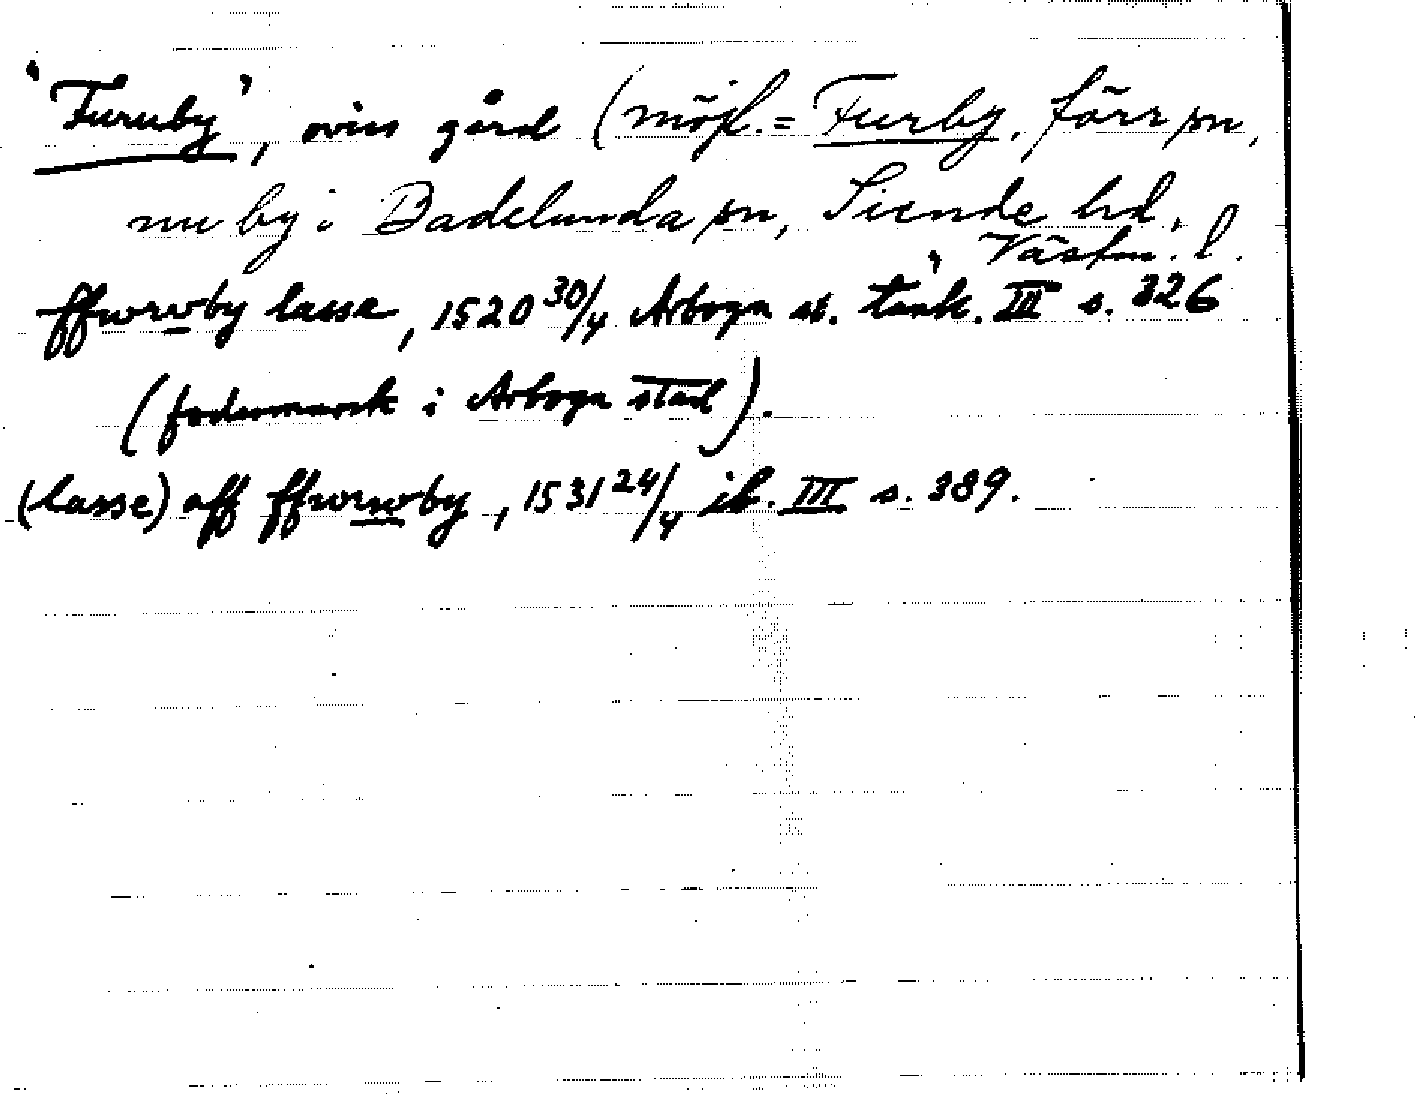 "Furuby", viss gård (möjl. = Furby, förr sn,
nu by i Badelunda sn, Siende hd,
Västm. l.
ffwrwby lasse, 1520 30/4 Arboga st. tänk. III s. 326
(fodermarsk i Arboga stad).
(lasse) aff ffwrwby, 1531 24/4 ib. III s. 389.